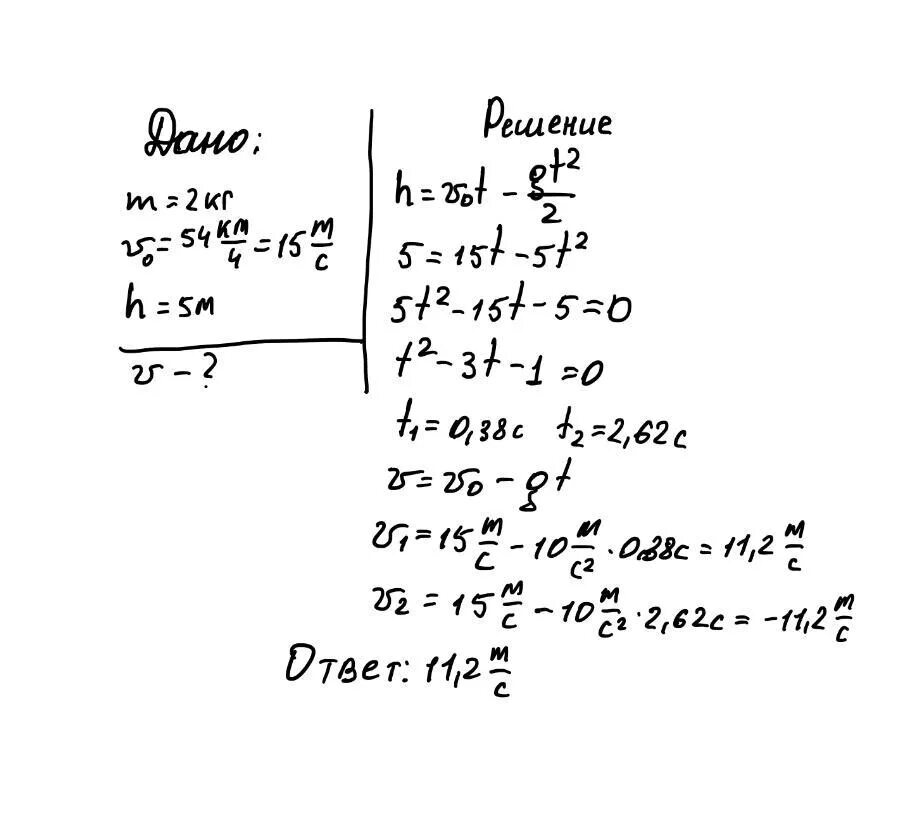 Дано:
m = 2кг
v₀ = 54 км/ч = 15 м/с
h = 5м
v - ?
Решение
h = v₀t - gt²/2
5 = 15t - 5t²
5t² - 15t - 5 = 0
t² - 3t - 1 = 0
t₁ = 0,38с t₂ = 2,62с
v = v₀ - gt
v₁ = 15 м/с - 10 м/с² · 0,38с = 11,2 м/с
v₂ = 15 м/с - 10 м/с² · 2,62с = -11,2 м/с
Ответ: 11,2 м/с